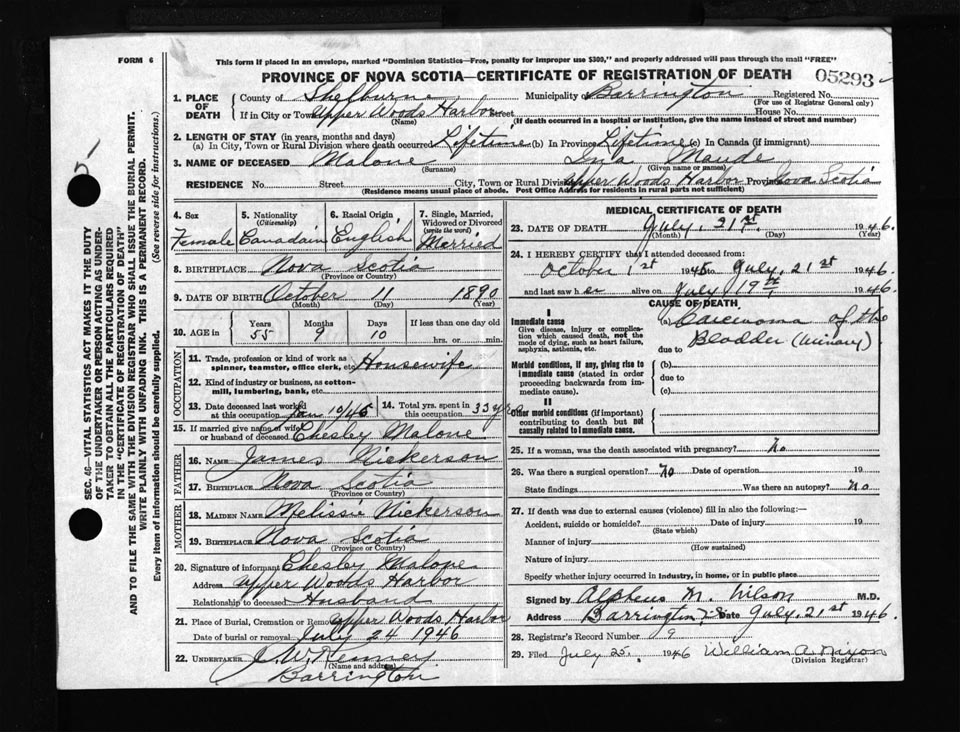 FORM 6
This form if placed in an envelope, marked "Dominion Statistics—Free, penalty for improper use $300," and properly addressed will pass through the mail "FREE"
PROVINCE OF NOVA SCOTIA—CERTIFICATE OF REGISTRATION OF DEATH 05293
1. PLACE OF DEATH County of Shelburne Municipality of Barrington Registered No.
(For use of Registrar General only)
If in City or Town Upper Woods Harbor Street House No.
(Name) (If death occurred in a hospital or institution, give the name instead of street and number)
2. LENGTH OF STAY (in years, months and days)
(a) In City, Town or Rural Division where death occurred Lifetime (b) In Province Lifetime (c) In Canada (if immigrant)
3. NAME OF DECEASED Malone Ina Maude
(Surname) (Given name or names)
RESIDENCE No. Street City, Town or Rural Division Upper Woods Harbor Province Nova Scotia
(Residence means usual place of abode. Post Office Address for residents in rural parts not sufficient)
4. Sex Female
5. Nationality (Citizenship) Canadain
6. Racial Origin English
7. Single, Married, Widowed or Divorced (write the word) Married
8. BIRTHPLACE Nova Scotia
(Province or Country)
9. DATE OF BIRTH October 11 1890
(Month) (Day) (Year)
10. AGE in Years 55 Months 9 Days 10 If less than one day hrs. or min.
OCCUPATION
11. Trade, profession or kind of work as spinner, teamster, office clerk, etc. Housewife
12. Kind of industry or business, as cotton-mill, lumbering, bank, etc.
13. Date deceased last worked at this occupation Jan 1945
14. Total yrs. spent in this occupation 33 yrs
15. If married give name of wife or husband of deceased Chesley Malone
FATHER
16. NAME James Nickerson
17. BIRTHPLACE Nova Scotia
(Province or Country)
MOTHER
18. MAIDEN NAME Melissa Nickerson
19. BIRTHPLACE Nova Scotia
(Province or Country)
20. Signature of informant Chesley Malone
Address Upper Woods Harbor
Relationship to deceased Husband
21. Place of Burial, Cremation or Removal Upper Woods Harbor
Date of burial or removal July 24 1946
22. UNDERTAKER J. W. Kenney
(Name and address)
Barrington
MEDICAL CERTIFICATE OF DEATH
23. DATE OF DEATH July, 21st. 1946.
(Month) (Day) (Year)
24. I HEREBY CERTIFY that I attended deceased from:
October 1st 1945 to July, 21st 1946.
and last saw her alive on July 19th, 1946.
CAUSE OF DEATH
I
Immediate cause (a) Carcinoma of the
Give disease, injury or complication which caused death, not the mode of dying, such as heart failure, asphyxia, asthenia, etc.
Bladder (Urinary)
due to
Morbid conditions, if any, giving rise to immediate cause (stated in order proceeding backwards from immediate cause).
(b)
due to
(c)
II
Other morbid conditions (if important) contributing to death but not causally related to immediate cause.
25. If a woman, was the death associated with pregnancy? No
26. Was there a surgical operation? No Date of operation 19
State findings Was there an autopsy? No
27. If death was due to external causes (violence) fill in also the following:—
Accident, suicide or homicide? Date of injury 19
(State which)
Manner of injury
(How sustained)
Nature of injury
Specify whether injury occurred in industry, in home, or in public place
Signed by Alpheus M. Wilson M.D.
Address Barrington Date July, 21st 1946.
28. Registrar's Record Number 9
29. Filed July 25, 1946 William A. Nixon
(Division Registrar)
SEC. 46—VITAL STATISTICS ACT MAKES IT THE DUTY
OF THE UNDERTAKER OR PERSON ACTING AS UNDER-
TAKER TO OBTAIN ALL THE PARTICULARS REQUIRED
IN THE "CERTIFICATE OF REGISTRATION OF DEATH"
AND TO FILE THE SAME WITH THE DIVISION REGISTRAR WHO SHALL ISSUE THE BURIAL PERMIT.
WRITE PLAINLY WITH UNFADING INK. THIS IS A PERMANENT RECORD.
Every item of information should be carefully supplied. (See reverse side for instructions.)
5-